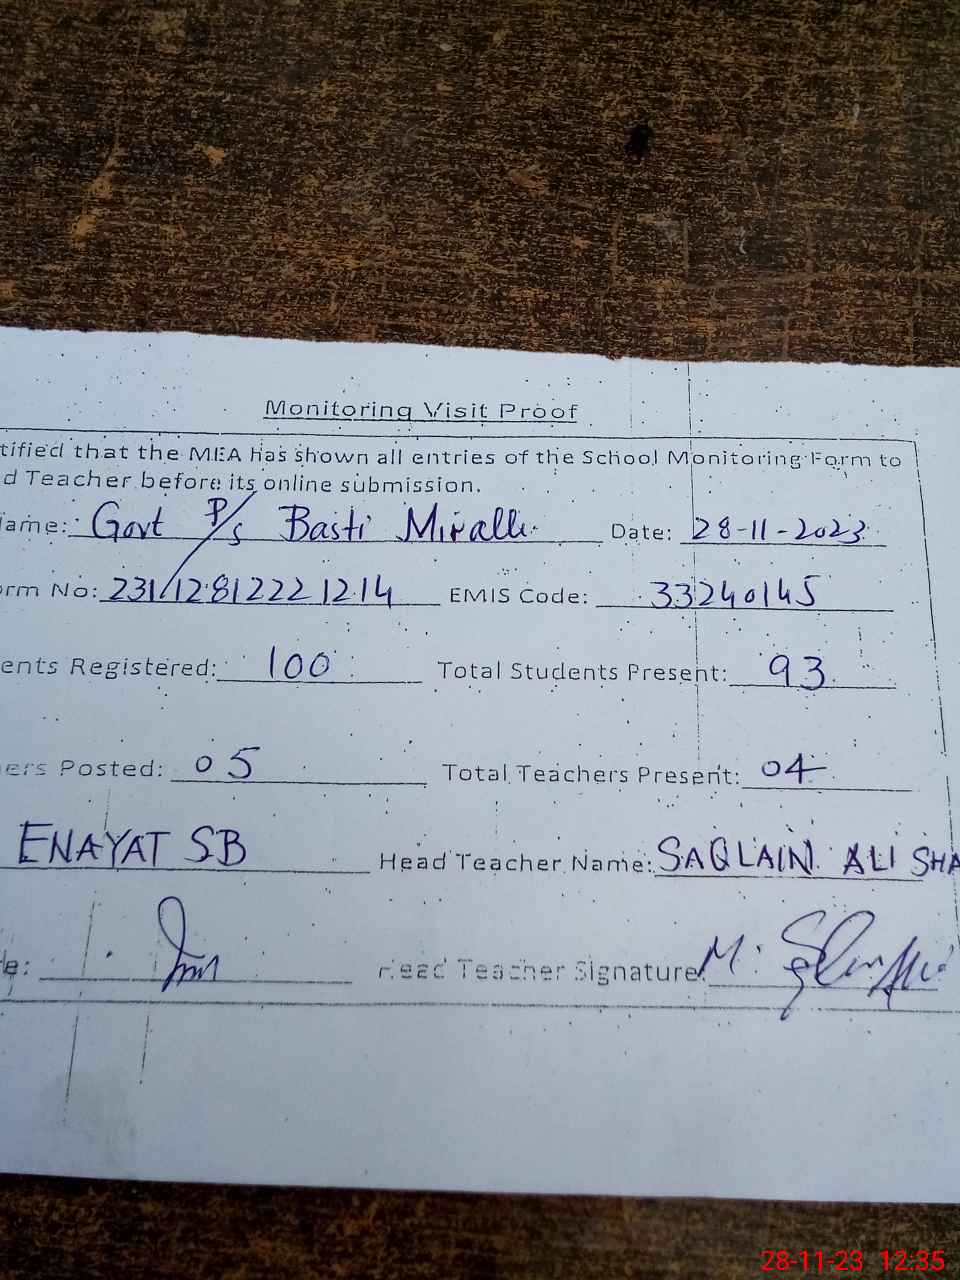 Monitoring Visit Proof
tified that the MEA has shown all entries of the School Monitoring Form to
d Teacher before its online submission.
ame: Govt P/s Basti Miralli Date: 28-11-2023
orm No: 23112812221214 EMIS Code: 33240145
ents Registered: 100 Total Students Present: 93
ers Posted: 05 Total Teachers Present: 04
ENAYAT SB Head Teacher Name: SAQLAIN ALI SHA
e: Head Teacher Signature: M.
28-11-23 12:35